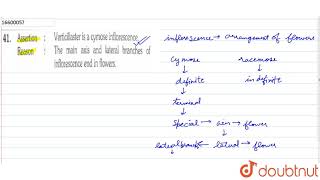 16600057
41. Assertion : Verticillaster is a cymose inflorescence
Reason : The main axis and lateral branches of
inflorescence end in flowers.
inflorescence → arrangement of flowers
cymose racemose
definite indefinite
terminal
special → axis → flower
lateral branch ← lateral → flower
doubtnut